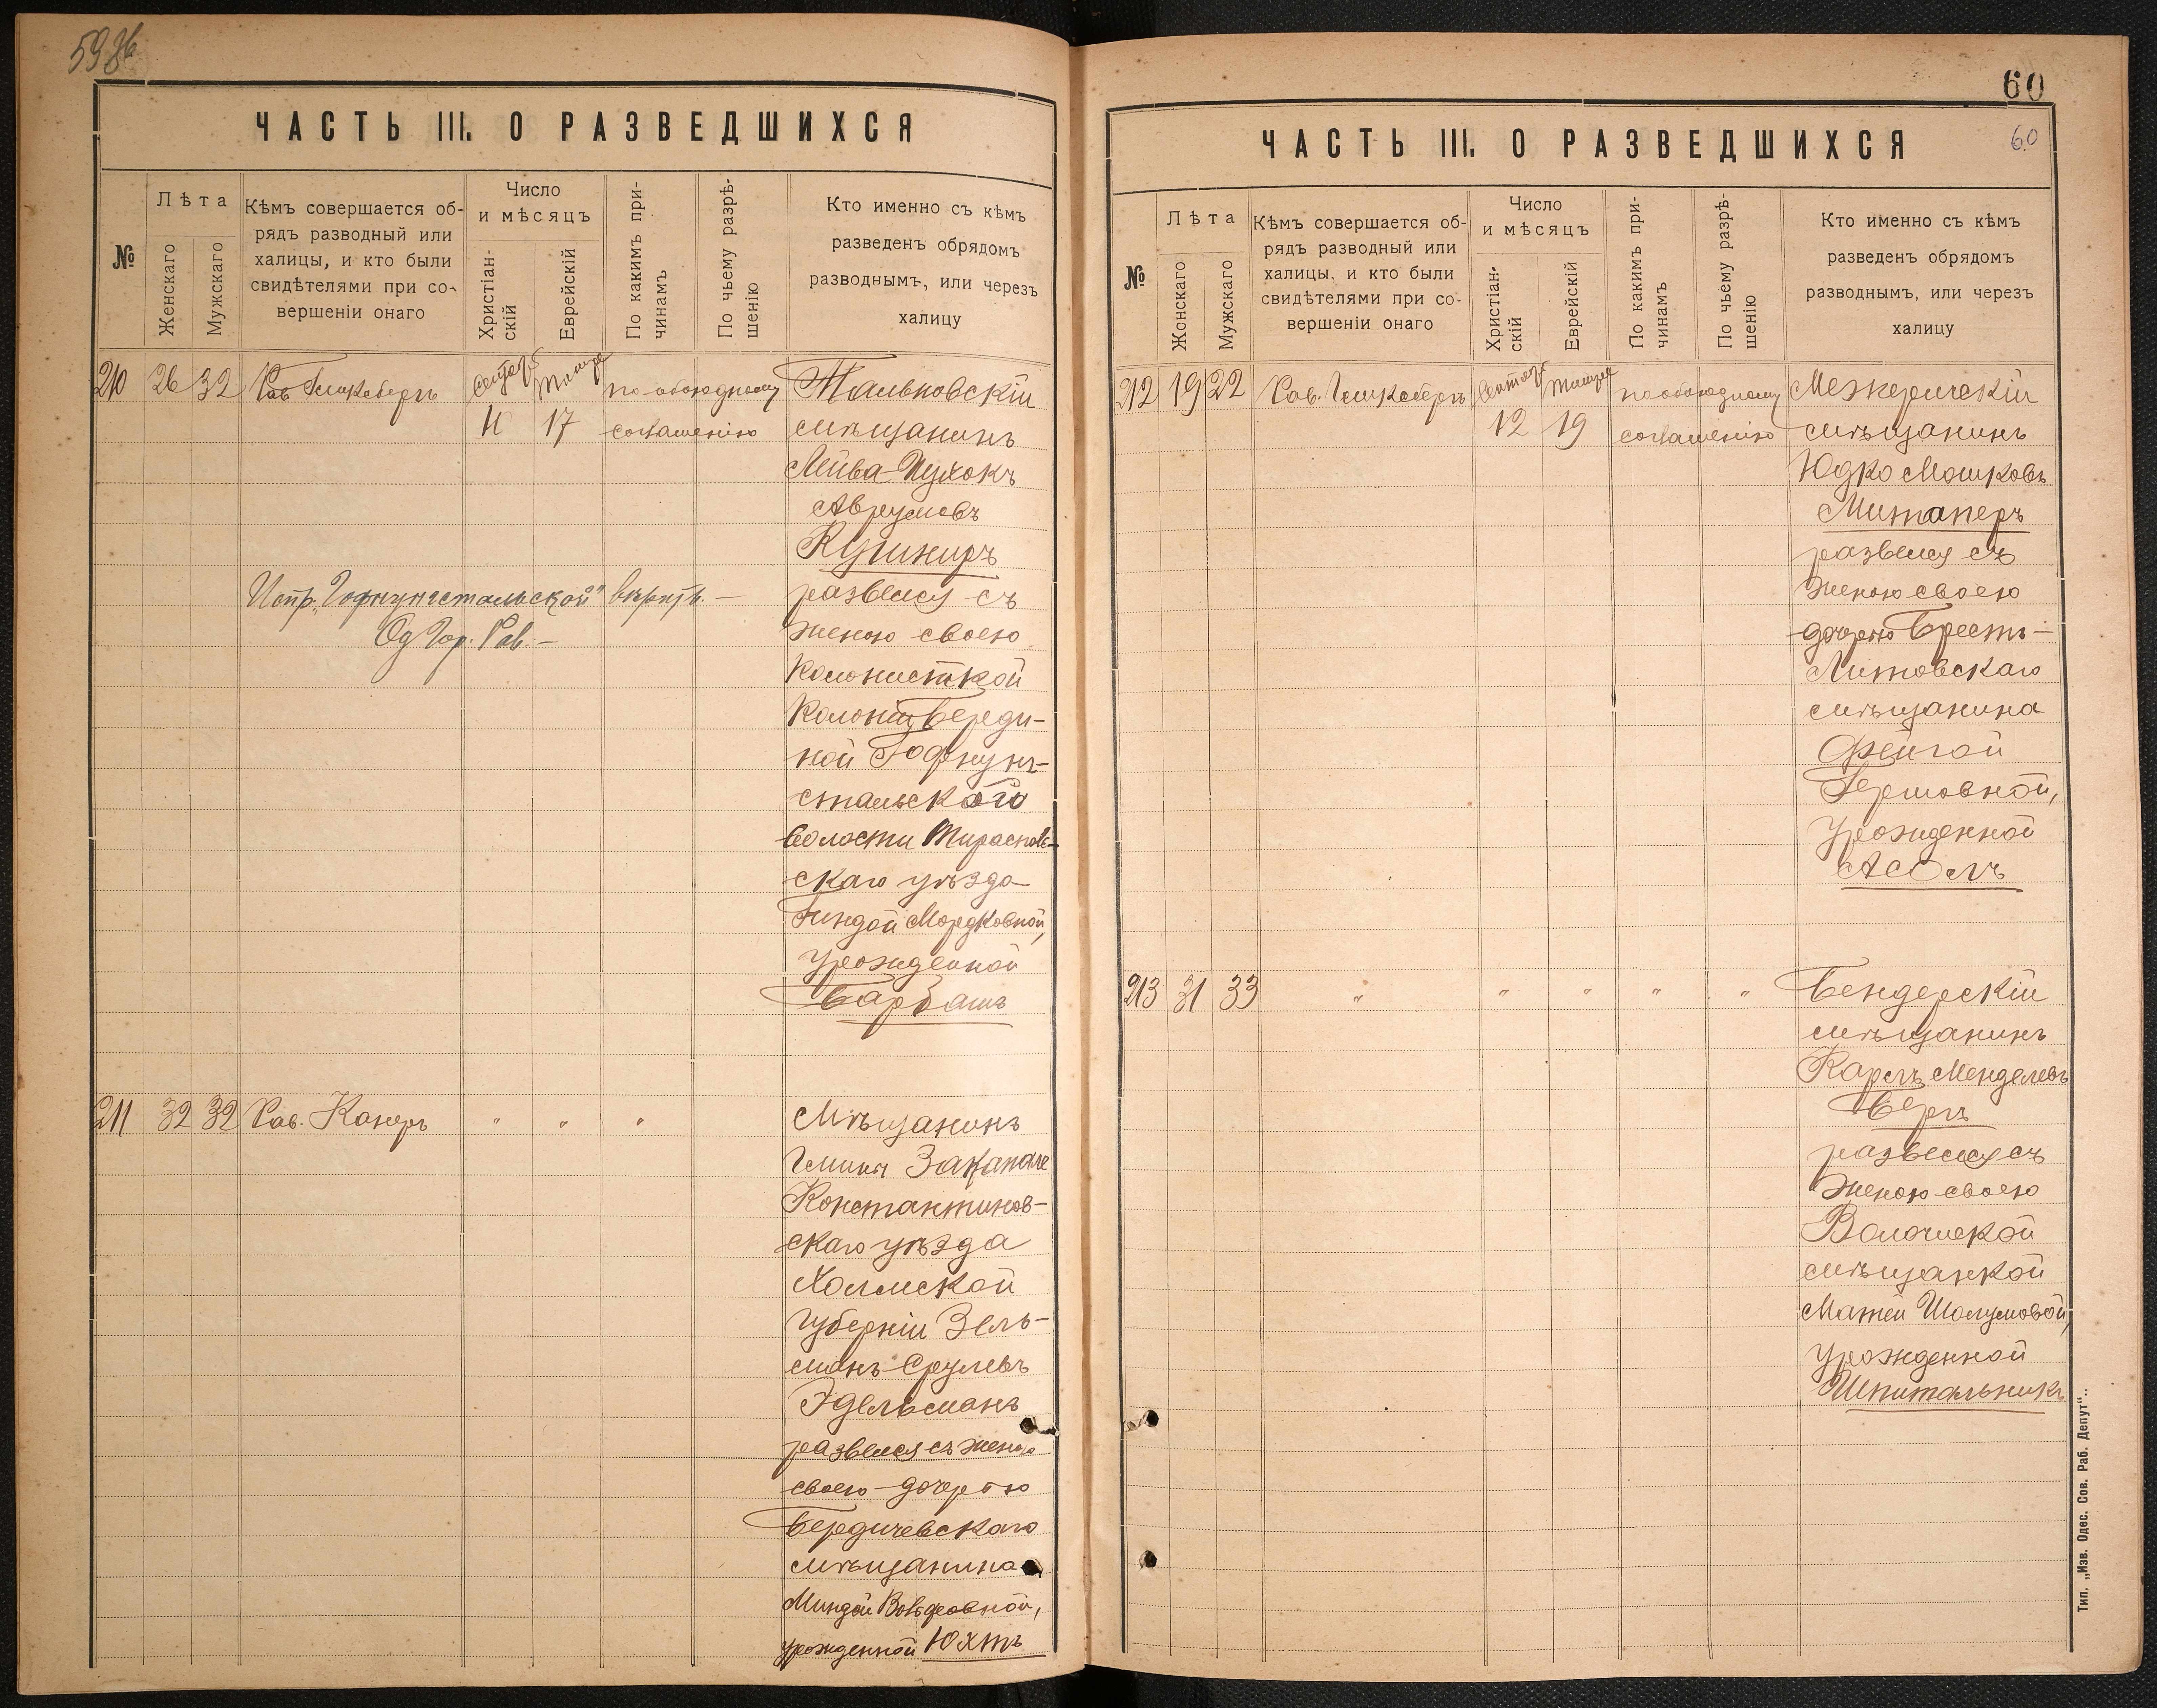 59об
ЧАСТЬ III. О РАЗВЕДШИХСЯ
№
Лѣта
Женскаго
Мужскаго
Кѣмъ совершается об-
рядъ разводный или
халицы, и кто были
свидѣтелями при со-
вершеніи онаго
Число
и мѣсяцъ
Христіан-
скій
Еврейскій
По какимъ при-
чинамъ
По чьему разрѣ-
шенію
Кто именно съ кѣмъ
разведенъ обрядомъ
разводнымъ, или черезъ
халицу
210 26 32 Рав. Сентяб Тишре по обоюдному Тальновскій
17 соглашенію мѣщанинъ
Лейва-Ицхокъ
Аврумовъ
Кушниръ
развелся съ
женою своею
колонисткой
колоніи Береди-
ной Гофнунг-
стальского
волости Тирасполь-
скаго уѣзда
Гиндой Мордковной,
урожденной
Барбашъ
Испр. „Гофнунгстальской" вѣрить. —
Од. Гор. Рав. —
211 32 32 Рав. Канеръ " " " Мѣщанинъ
гмины
Константинов-
скаго уѣзда
Холмской
губерніи Зель-
манъ Срулевъ
Эдельманъ
развелся съ женою
своею дочерью
Бердичевскаго
мѣщанина
Миндой Вольфовной,
урожденной Юхтъ
60
60
ЧАСТЬ III. О РАЗВЕДШИХСЯ
№
Лѣта
Жонскаго
Мужскаго
Кѣмъ совершается об-
рядъ разводный или
халицы, и кто были
свидѣтелями при со-
вершеніи онаго
Число
и мѣсяцъ
Христіан-
скій
Еврейскій
По какимъ при-
чинамъ
По чьему разрѣ-
шенію
Кто именно съ кѣмъ
разведенъ обрядомъ
разводнымъ, или черезъ
халицу
212 19 22 Рав. Сентяб Тишре по обоюдному Межеричскій
12 19 соглашенію мѣщанинъ
Юдко Мошковъ
Митаперъ
развелся съ
женою своею
дочерью Брестъ-
Литовскаго
мѣщанина
Фейгой
Гершовной,
урожденной
213 31 33 " " " " " Бендерскій
мѣщанинъ
Карлъ Менделевъ
Бергъ
развелся съ
женою своею
мѣщанкой
Шолумовой,
урожденной
Шпитальникъ
Тип. „Изв. Одес. Сов. Раб. Депут".